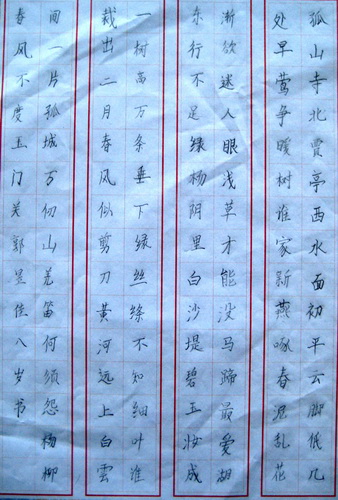 孤山寺北贾亭西水面初平云脚低几
处早莺争暖树谁家新燕啄春泥乱花
渐欲迷人眼浅草才能没马蹄最爱湖
东行不足绿杨阴里白沙堤碧玉妆成
一树高万条垂下绿丝绦不知细叶谁
裁出二月春风似剪刀黄河远上白雲
间一片孤城万仞山羌笛何须怨杨柳
春风不度玉门关郭昱佳八岁书